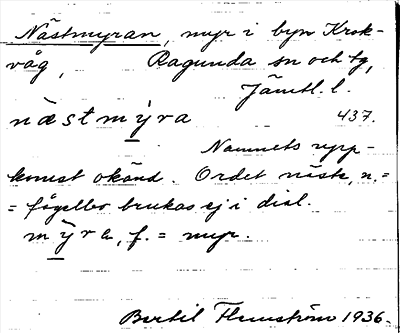 Nästmyran, myr i byn Krok-
våg, Ragunda sn och tg,
Jämtl. l.
näs t m ỳ r a 437.
Namnets upp-
komst okänd. Ordet näste, n. =
= fågelbo brukas ej i dial.
m ỳ r a, f. = myr.
Bertil Flemström 1936.